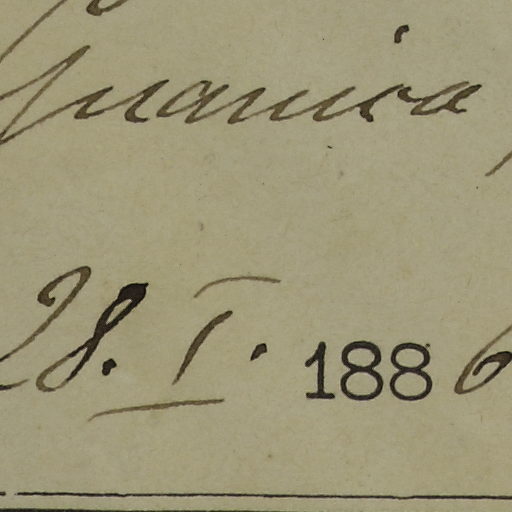 Guanica,
28. I. 1886